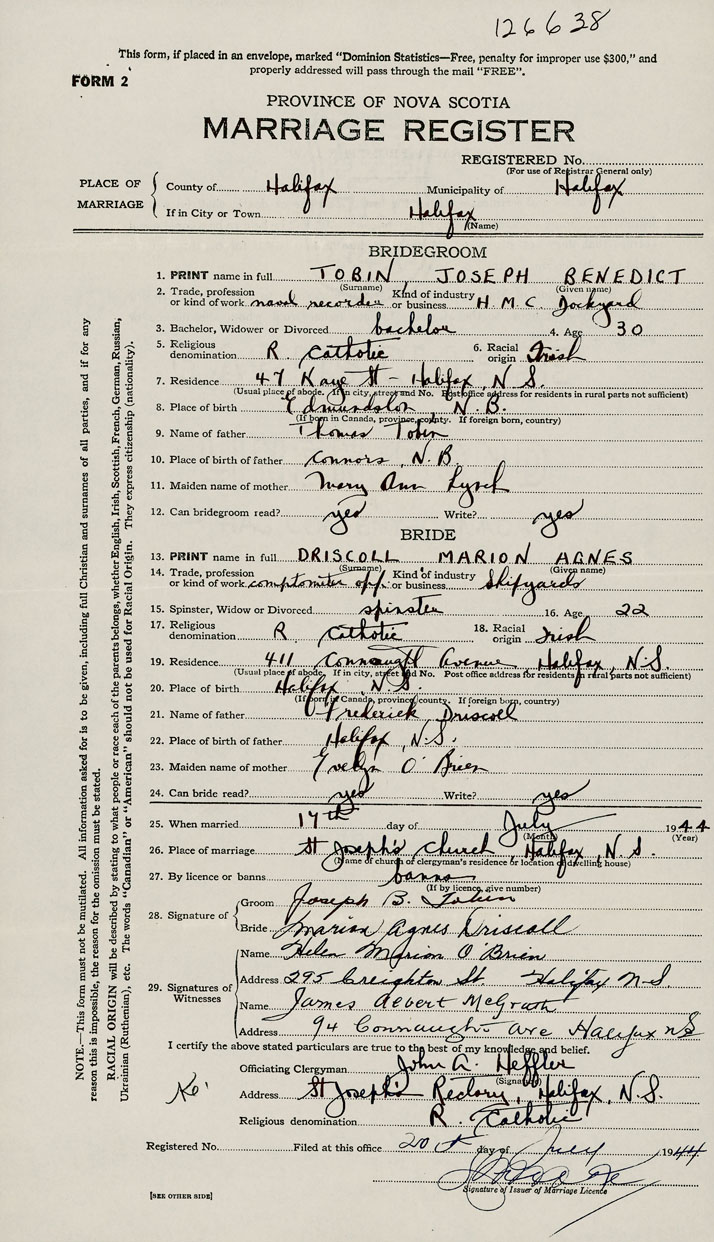 126638
This form, if placed in an envelope, marked "Dominion Statistics—Free, penalty for improper use $300," and
properly addressed will pass through the mail "FREE".
FORM 2
PROVINCE OF NOVA SCOTIA
MARRIAGE REGISTER
REGISTERED No.
(For use of Registrar General only)
PLACE OF MARRIAGE
County of Halifax Municipality of Halifax
If in City or Town Halifax
(Name)
BRIDEGROOM
1. PRINT name in full TOBIN, JOSEPH BENEDICT
(Surname) (Given name)
2. Trade, profession or kind of work naval recorder Kind of industry or business H.M.C. Dockyard
3. Bachelor, Widower or Divorced bachelor 4. Age 30
5. Religious denomination R. Catholic 6. Racial origin Irish
7. Residence 47 Kaye St - Halifax, N.S.
(Usual place of abode. If in city, street and No. Post office address for residents in rural parts not sufficient)
8. Place of birth Edmundston, N.B.
(If born in Canada, province, county. If foreign born, country)
9. Name of father Thomas Tobin
10. Place of birth of father Connors, N.B.
11. Maiden name of mother Mary Ann Lynch
12. Can bridegroom read? yes Write? yes
BRIDE
13. PRINT name in full DRISCOLL MARION AGNES
(Surname) (Given name)
14. Trade, profession or kind of work comptometer opp. Kind of industry or business Shipyards
15. Spinster, Widow or Divorced spinster 16. Age 22
17. Religious denomination R. Catholic 18. Racial origin Irish
19. Residence 411 Connaught Avenue, Halifax, N.S.
(Usual place of abode. If in city, street and No. Post office address for residents in rural parts not sufficient)
20. Place of birth Halifax, N.S.
(If born in Canada, province, county. If foreign born, country)
21. Name of father Frederick Driscoll
22. Place of birth of father Halifax, N.S.
23. Maiden name of mother Evelyn O'Brien
24. Can bride read? yes Write? yes
25. When married 17th day of July 1944
(Month) (Year)
26. Place of marriage St Joseph's Church, Halifax, N.S.
(Name of church of clergyman's residence or location of dwelling house)
27. By licence or banns banns
(If by licence, give number)
28. Signature of
Groom Joseph B. Tobin
Bride Marion Agnes Driscoll
29. Signatures of Witnesses
Name Helen Marion O'Brien
Address 295 Creighton St Halifax N-S.
Name James McGrath
Address 94 Connaught Ave Halifax NS
I certify the above stated particulars are true to the best of my knowledge and belief.
Officiating Clergyman John A. Heffler
(Signature)
Address St Joseph's Rectory, Halifax, N.S.
Religious denomination R. Catholic
Registered No. Filed at this office 20 day of July, 1944
Signature of Issuer of Marriage Licence
[SEE OTHER SIDE]
NOTE.—This form must not be mutilated. All information asked for is to be given, including full Christian and surnames of all parties, and if for any
reason this is impossible, the reason for the omission must be stated.
RACIAL ORIGIN will be described by stating to what people or race each of the parents belongs, whether English, Irish, Scottish, French, German, Russian,
Ukrainian (Ruthenian), etc. The words "Canadian" or "American" should not be used for Racial Origin. They express citizenship (nationality).